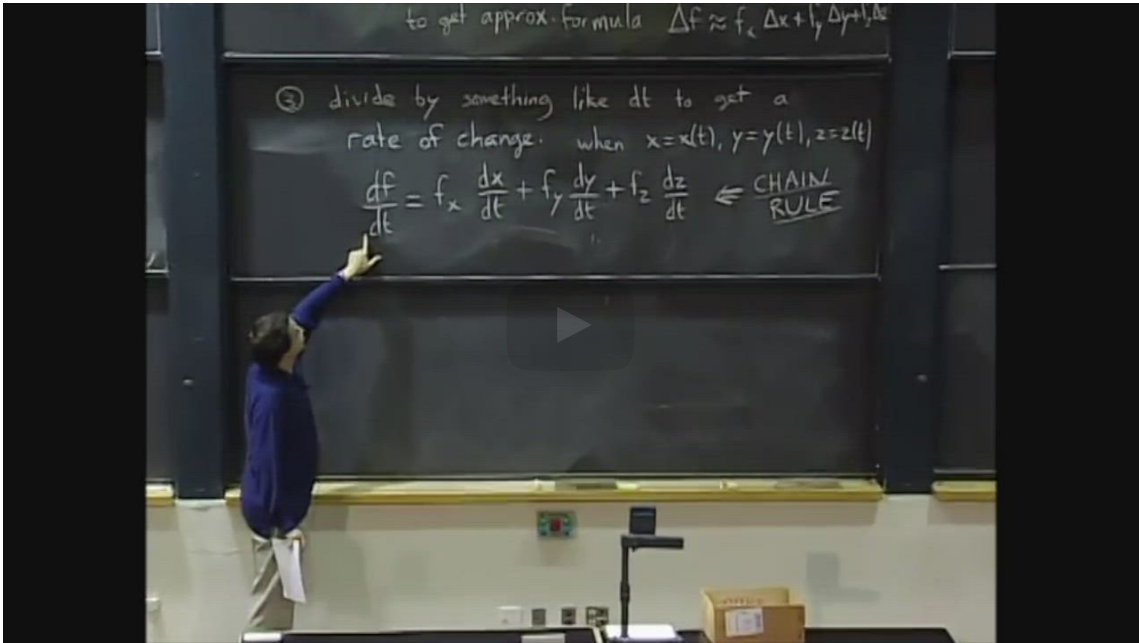 to get approx. formula Δf ≈ fx Δx + fy Δy + fz Δz
③ divide by something like dt to get a
rate of change. when x=x(t), y=y(t), z=z(t)
df/dt = fx dx/dt + fy dy/dt + fz dz/dt ⇐ CHAIN RULE